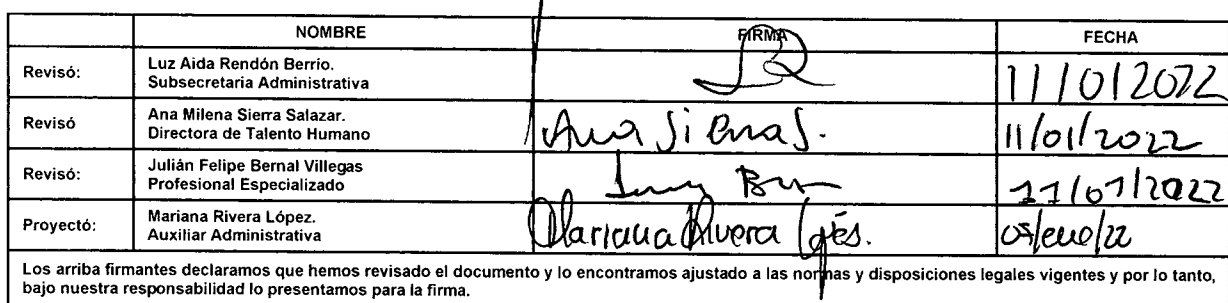 NOMBRE FIRMA FECHA
Revisó: Luz Aida Rendón Berrío.
Subsecretaria Administrativa
11/01/2022
Revisó Ana Milena Sierra Salazar.
Directora de Talento Humano
Ana Sierra S. 11/01/2022
Revisó: Julián Felipe Bernal Villegas
Profesional Especializado
11/01/2022
Proyectó: Mariana Rivera López.
Auxiliar Administrativa
Mariana Rivera López. /ene/22
Los arriba firmantes declaramos que hemos revisado el documento y lo encontramos ajustado a las normas y disposiciones legales vigentes y por lo tanto,
bajo nuestra responsabilidad lo presentamos para la firma.